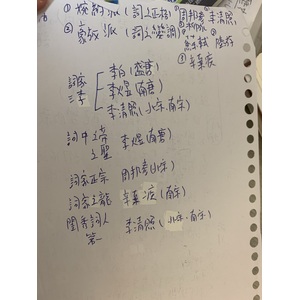 ① 婉約派(詞之正格)
周邦彥 李清照
② 豪放派(詞之變調)
蘇軾 陸游
辛棄疾
詞家三李
李白(盛唐)
李煜(南唐)
李清照(北宋.南宋)
詞中之帝
之聖 李煜(南唐)
詞家正宗 周邦彥(北宋)
詞家之龍 辛棄疾(南宋)
閨秀詞人 李清照(北宋.南宋)
第一